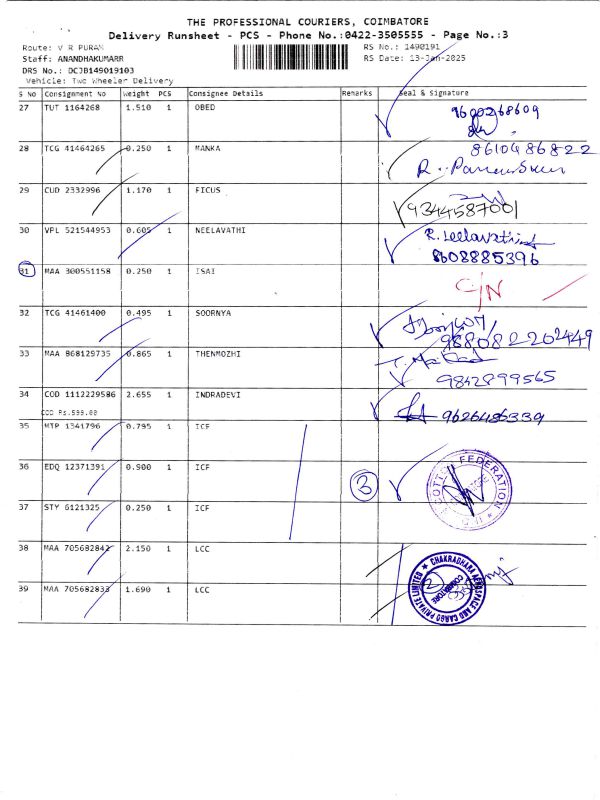 THE PROFESSIONAL COURIERS, COIMBATORE
Delivery Runsheet - PCS - Phone No.:0422-3505555 - Page No.:3
Route: V R PURAM RS No.: 1490191
Staff: ANANDHAKUMARR RS Date: 13-Jan-2025
DRS No.: DCJB149019103
Vehicle: Two Wheeler Delivery
S No Consignment No Weight PCS Consignee Details Remarks Seal & Signature
27 TUT 1164268 1.510 1 OBED 9600268609
28 TCG 41464265 0.250 1 MANKA 8610486822
29 CUD 2332996 1.170 1 FICUS 9344587001
30 VPL 521544953 0.605 1 NEELAVATHI R. Leelavathi
8608885396
31 MAA 300551158 0.250 1 ISAI C/N
32 TCG 41461400 0.495 1 SOORNYA
33 MAA 868129735 0.865 1 THENMOZHI
9842899565
34 COD 1112229586 2.655 1 INDRADEVI 9626485339
COD Rs.599.00
35 MTP 1341796 0.795 1 ICF
36 EDQ 12371391 0.900 1 ICF 3 COTTON FEDERATION
37 STY 6121325 0.250 1 ICF
38 MAA 705682842 2.150 1 LCC
39 MAA 705682833 1.690 1 LCC CHAKRADHARA AEROSPACE AND CARGO PRIVATE LIMITED
COIMBATORE
2